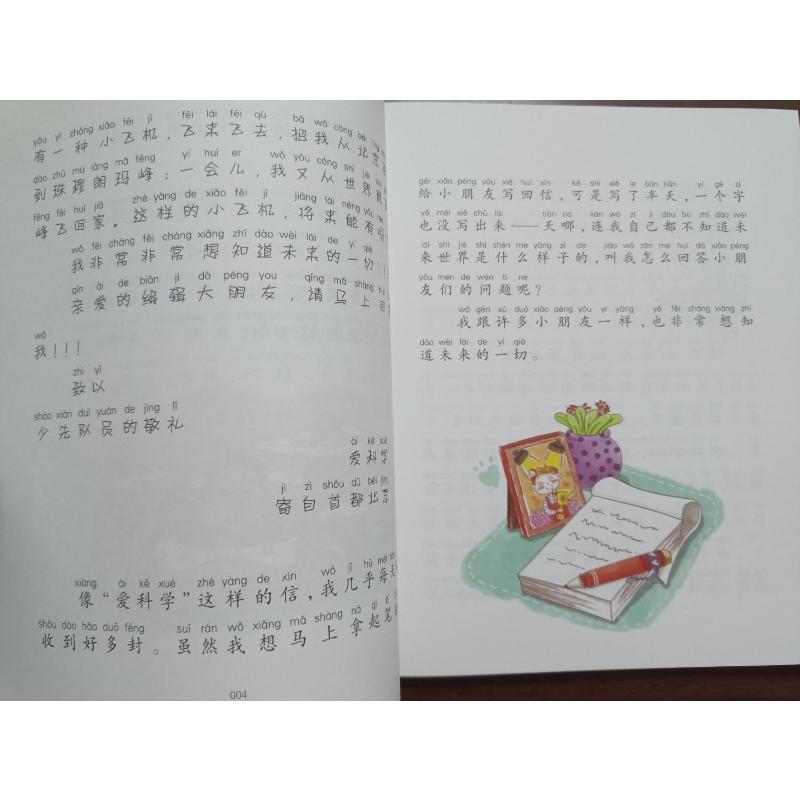 yǒu yì zhǒng xiǎo fēi jī fēi lái fēi qù bǎ wǒ cóng běi jīng
有一种小飞机，飞来飞去，把我从北京
dào zhū mù lǎng mǎ fēng yí huì er wǒ yòu cóng shì jiè
到珠穆朗玛峰；一会儿，我又从世界
fēng fēi huí jiā zhè yàng de xiǎo fēi jī jiāng lái néng yǒu
峰飞回家。这样的小飞机，将来能有
wǒ fēi cháng fēi cháng xiǎng zhī dào wèi lái de yí qiè
我非常非常想知道未来的一切！！
qīn ài de biān jí dà péng you qǐng mǎ shàng huí
亲爱的编辑大朋友，请马上回
wǒ
我！！！
zhì yǐ
致以
shào xiān duì yuán de jìng lǐ
少先队员的敬礼
ài kē xué
爱科学
jì zì shǒu dū běi jīng
寄自首都北京
xiàng ài kē xué zhè yàng de xìn wǒ jī hū měi tiān
像“爱科学”这样的信，我几乎每天
shōu dào hǎo duō fēng suī rán wǒ xiǎng mǎ shàng ná qǐ bǐ
收到好多封。虽然我想马上拿起笔
004
gěi xiǎo péng yǒu xiě huí xìn kě shì xiě le bàn tiān yí gè zì
给小朋友写回信，可是写了半天，一个字
yě méi xiě chū lái tiān na lián wǒ zì jǐ dōu bù zhī dào wèi
也没写出来——天哪，连我自己都不知道未
lái shì jiè shì shén me yàng zi de jiào wǒ zěn me huí dá xiǎo péng
来世界是什么样子的，叫我怎么回答小朋
yǒu men de wèn tí ne
友们的问题呢？
wǒ gēn xǔ duō xiǎo péng yǒu yí yàng yě fēi cháng xiǎng zhī
我跟许多小朋友一样，也非常想知
dào wèi lái de yí qiè
道未来的一切。